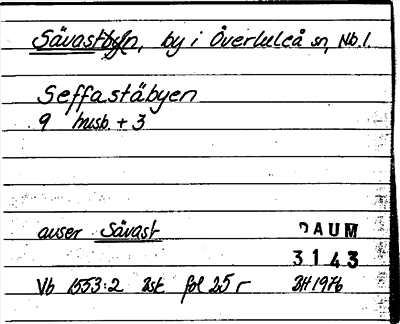 Sävastbyn, by i Överluleå sn, Nb.l.
Seffastäbyen
9 husb. + 3
avser Sävast
DAUM
3143
Vb 1553:2 åsk fol 25 r BH 1976